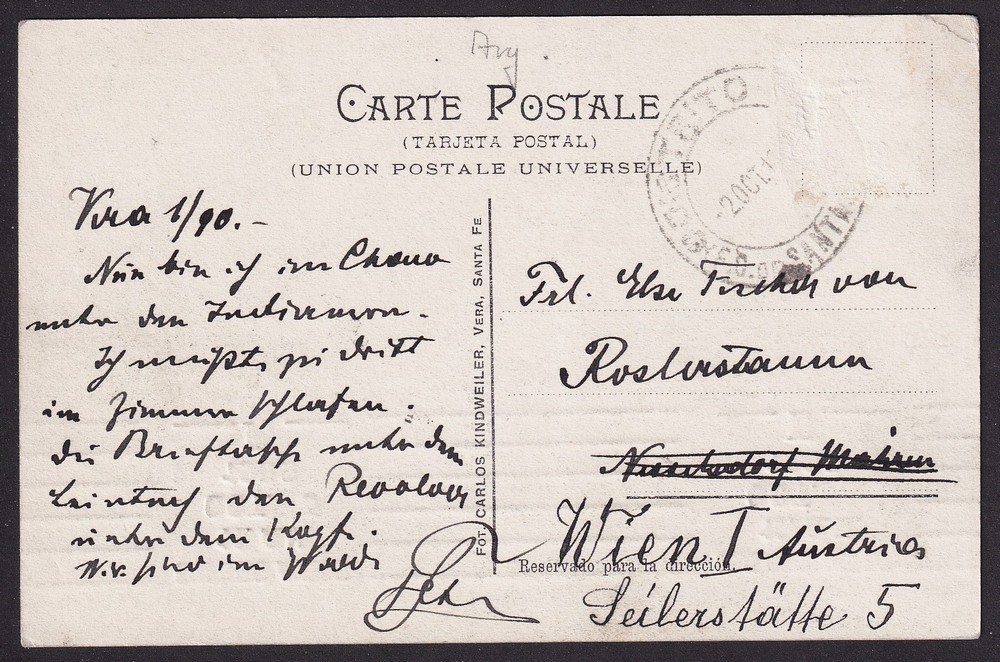 Arg.
CARTE POSTALE
(TARJETA POSTAL)
(UNION POSTALE UNIVERSELLE)
2 OCT. 1
SANTA
Vera 1/90.-
Nun bin ich im Chaco
unter den Indianern.
Ich mußte zu dritt
im Zimmer schlafen.
die Brieftasche unter dem
Leintuch den Revolver
unter dem Kopf.
wir sind im Walde
FOT. CARLOS KINDWEILER, VERA, SANTA FE
Frl. Else Fischer von
Roslerstamm
Mähren
Wien I Austria
Reservado para la dirección.
Seilerstätte 5